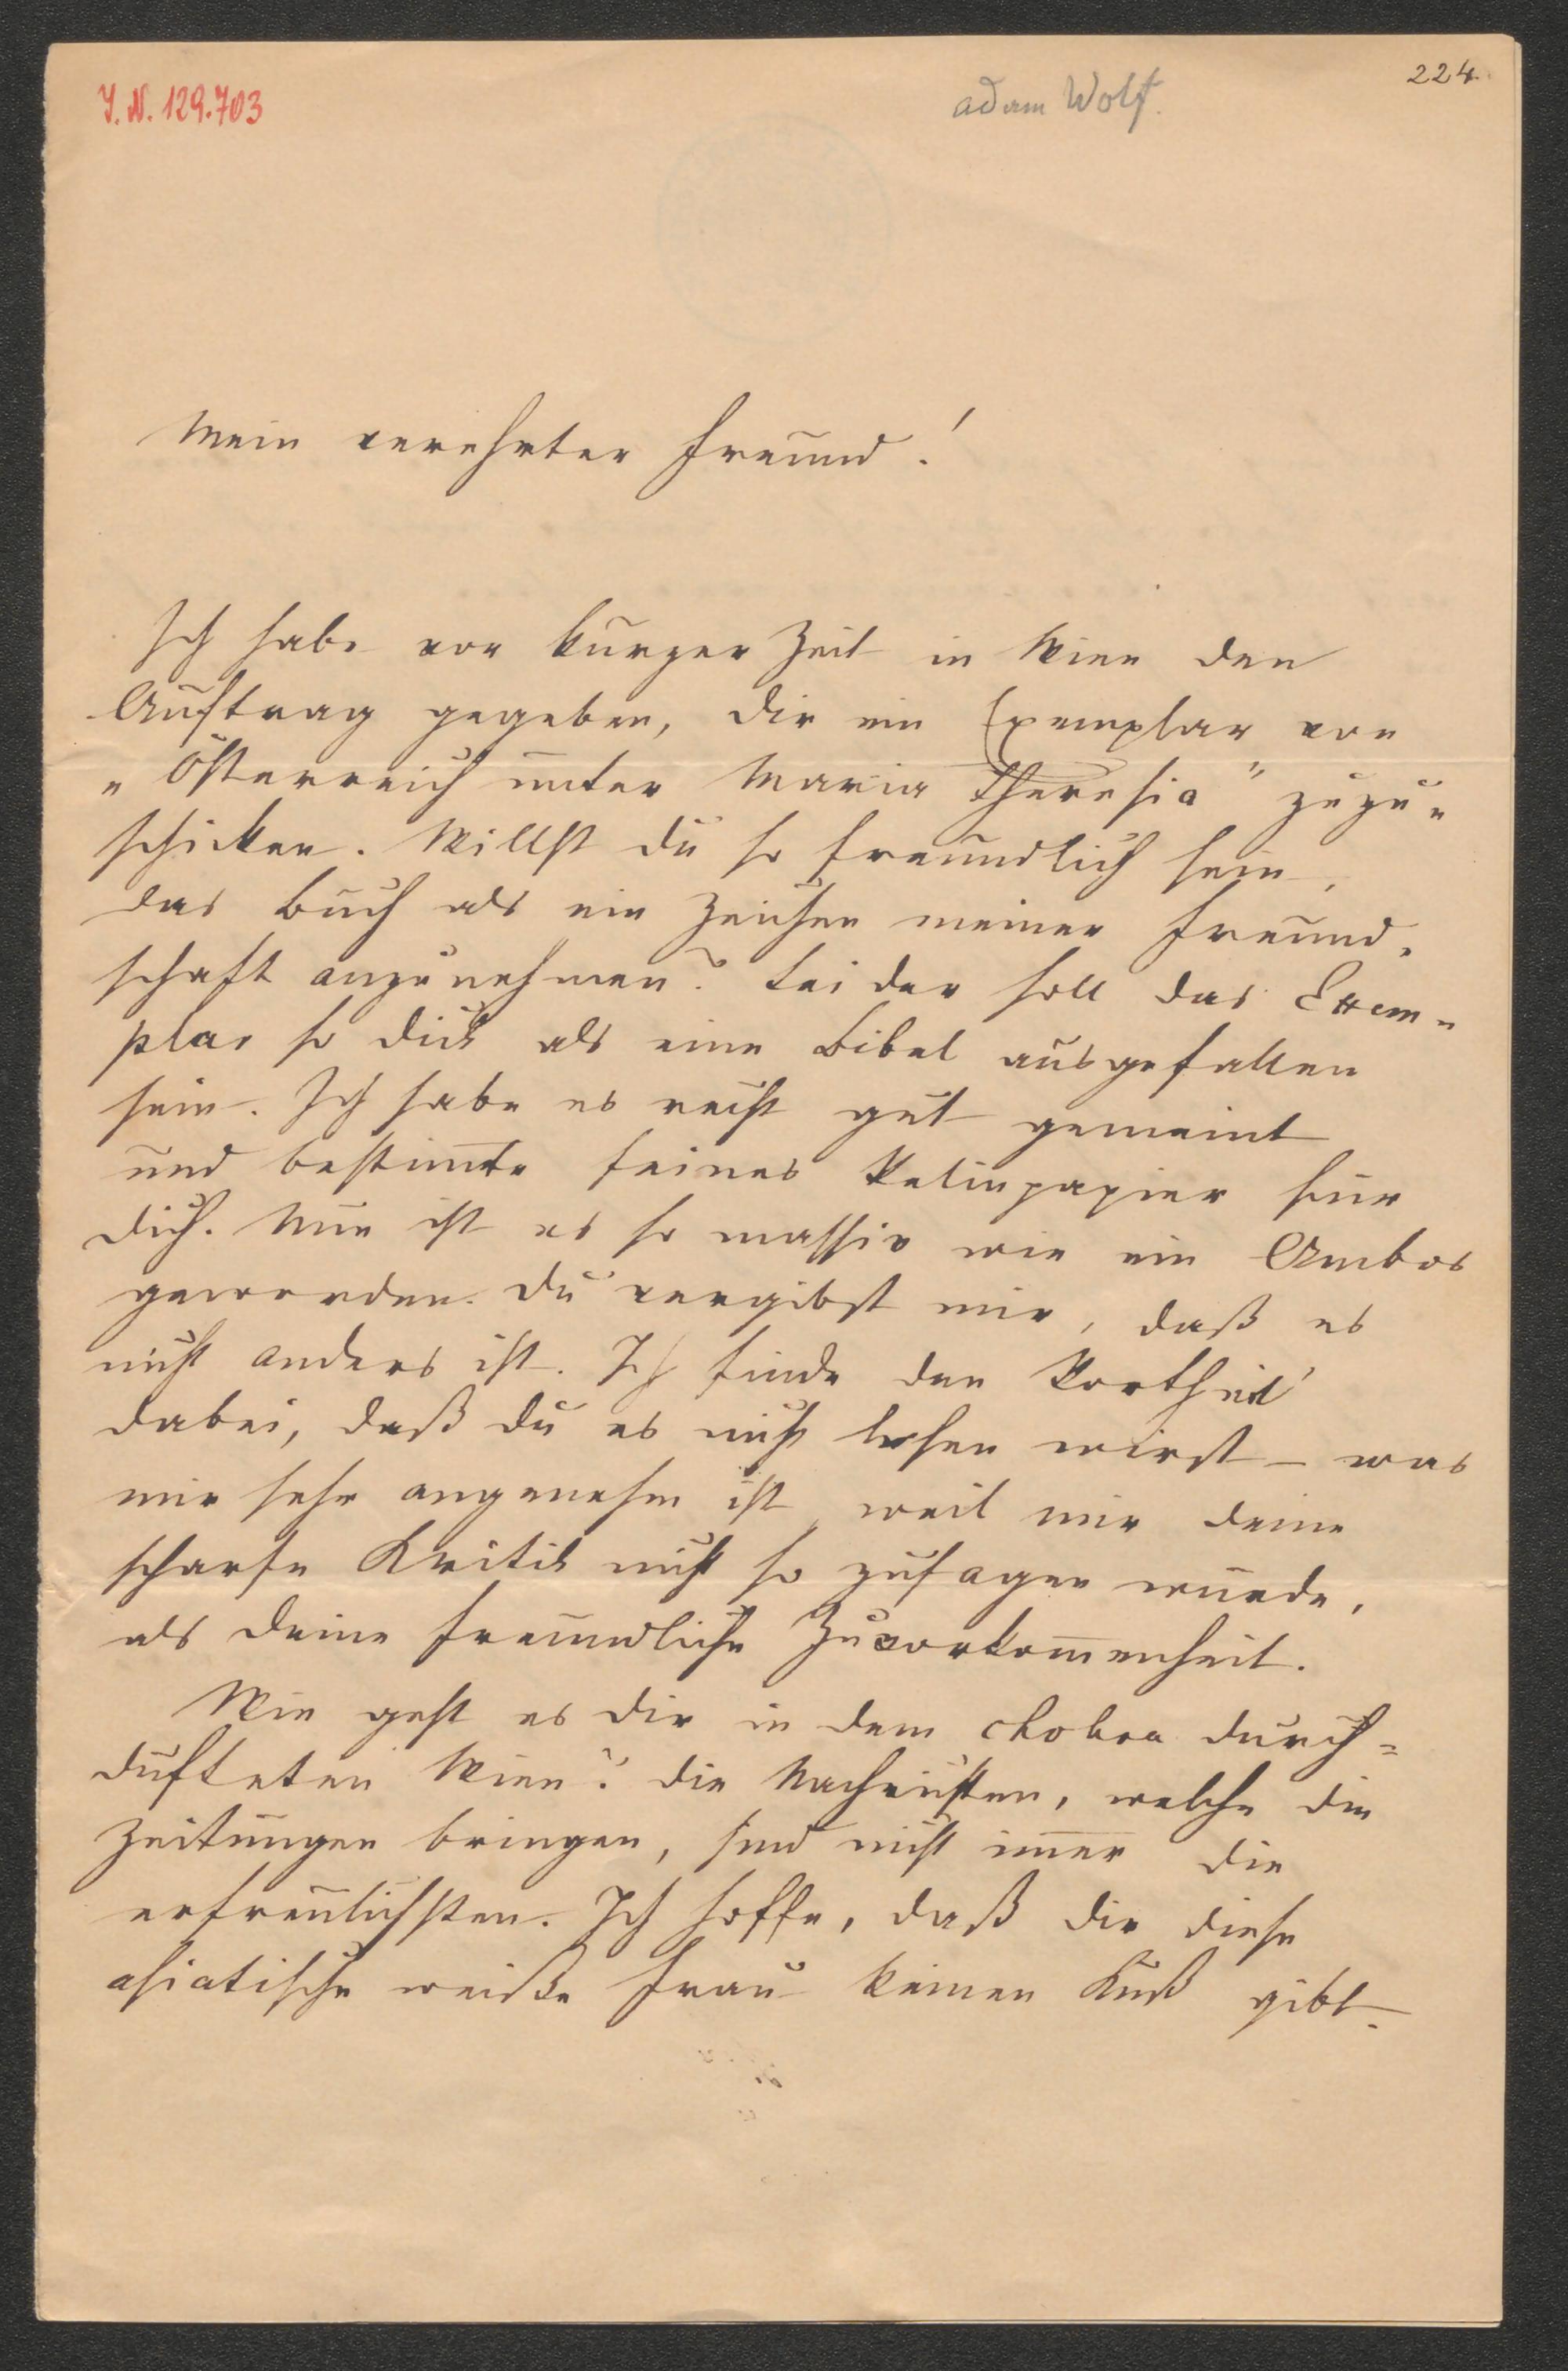 I. N. 129.703
Adam Wolf.
224.
Mein verehrter Freund!
Ich habe vor kurzer Zeit in Wien den
Auftrag gegeben, dir ein Exemplar von
„Österreich unter Maria Theresia" zuzu-
schicken. Willst du so freundlich sein,
das Buch als ein Zeichen meiner Freund-
schaft anzunehmen? Leider soll das Exem-
plar so dick als eine Bibel ausgefallen
sein. Ich habe es recht gut gemeint
und bestim̄te feines Velinpapier für
dich. Nun ist es so massiv wie ein Ambos
geworden. Du vergibst mir, daß es
nicht anders ist. Ich finde den Vortheil
dabei, daß du es nicht lesen wirst – was
mir sehr angenehm ist, weil mir deine
scharfe Kritik nicht so zusagen würde,
als deine freundliche Zuvorkom̄enheit.
Wie geht es dir in dem cholera durch=
dufteten Wien? Die Nachrichten, welche die
Zeitungen bringen, sind nicht im̄er die
erfreulichsten. Ich hoffe, daß dir diese
asiatische weiße Frau keinen Kuß gibt.